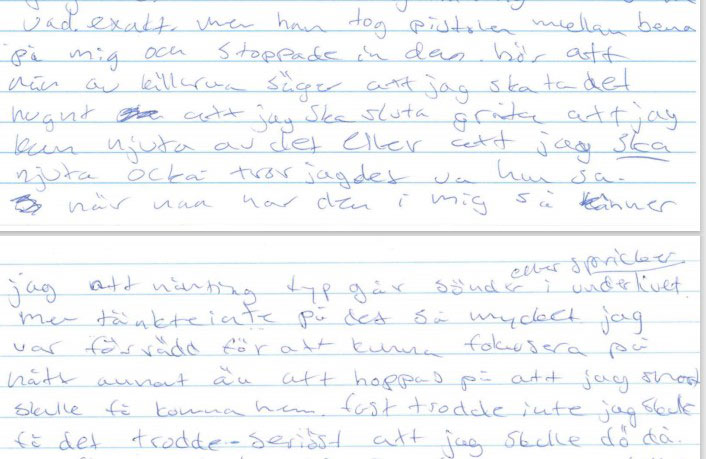 vad exakt. men han tog pistolen mellan bena
på mig och stoppade in den. hör att
nån av killarna säger att jag ska ta det
lugnt att jag ska sluta gråta att jag
kan njuta av det eller att jag ska
njuta ockå tror jag det va han sa.
när han har den i mig så känner
jag att nånting typ går sönder eller spricker i underlivet.
men tänkte inte på det så mycket. jag
var för rädd för att kunna fokusera på
nått annat än att hoppas på att jag snart
skulle få komma hem. fast trodde inte jag skulle
få det trodde seriöst att jag skulle dö då.